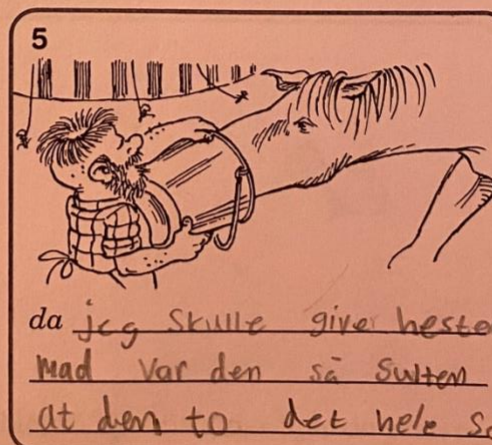 5
da jeg Skulle give heste
mad var den så sulten
at den to det hele s